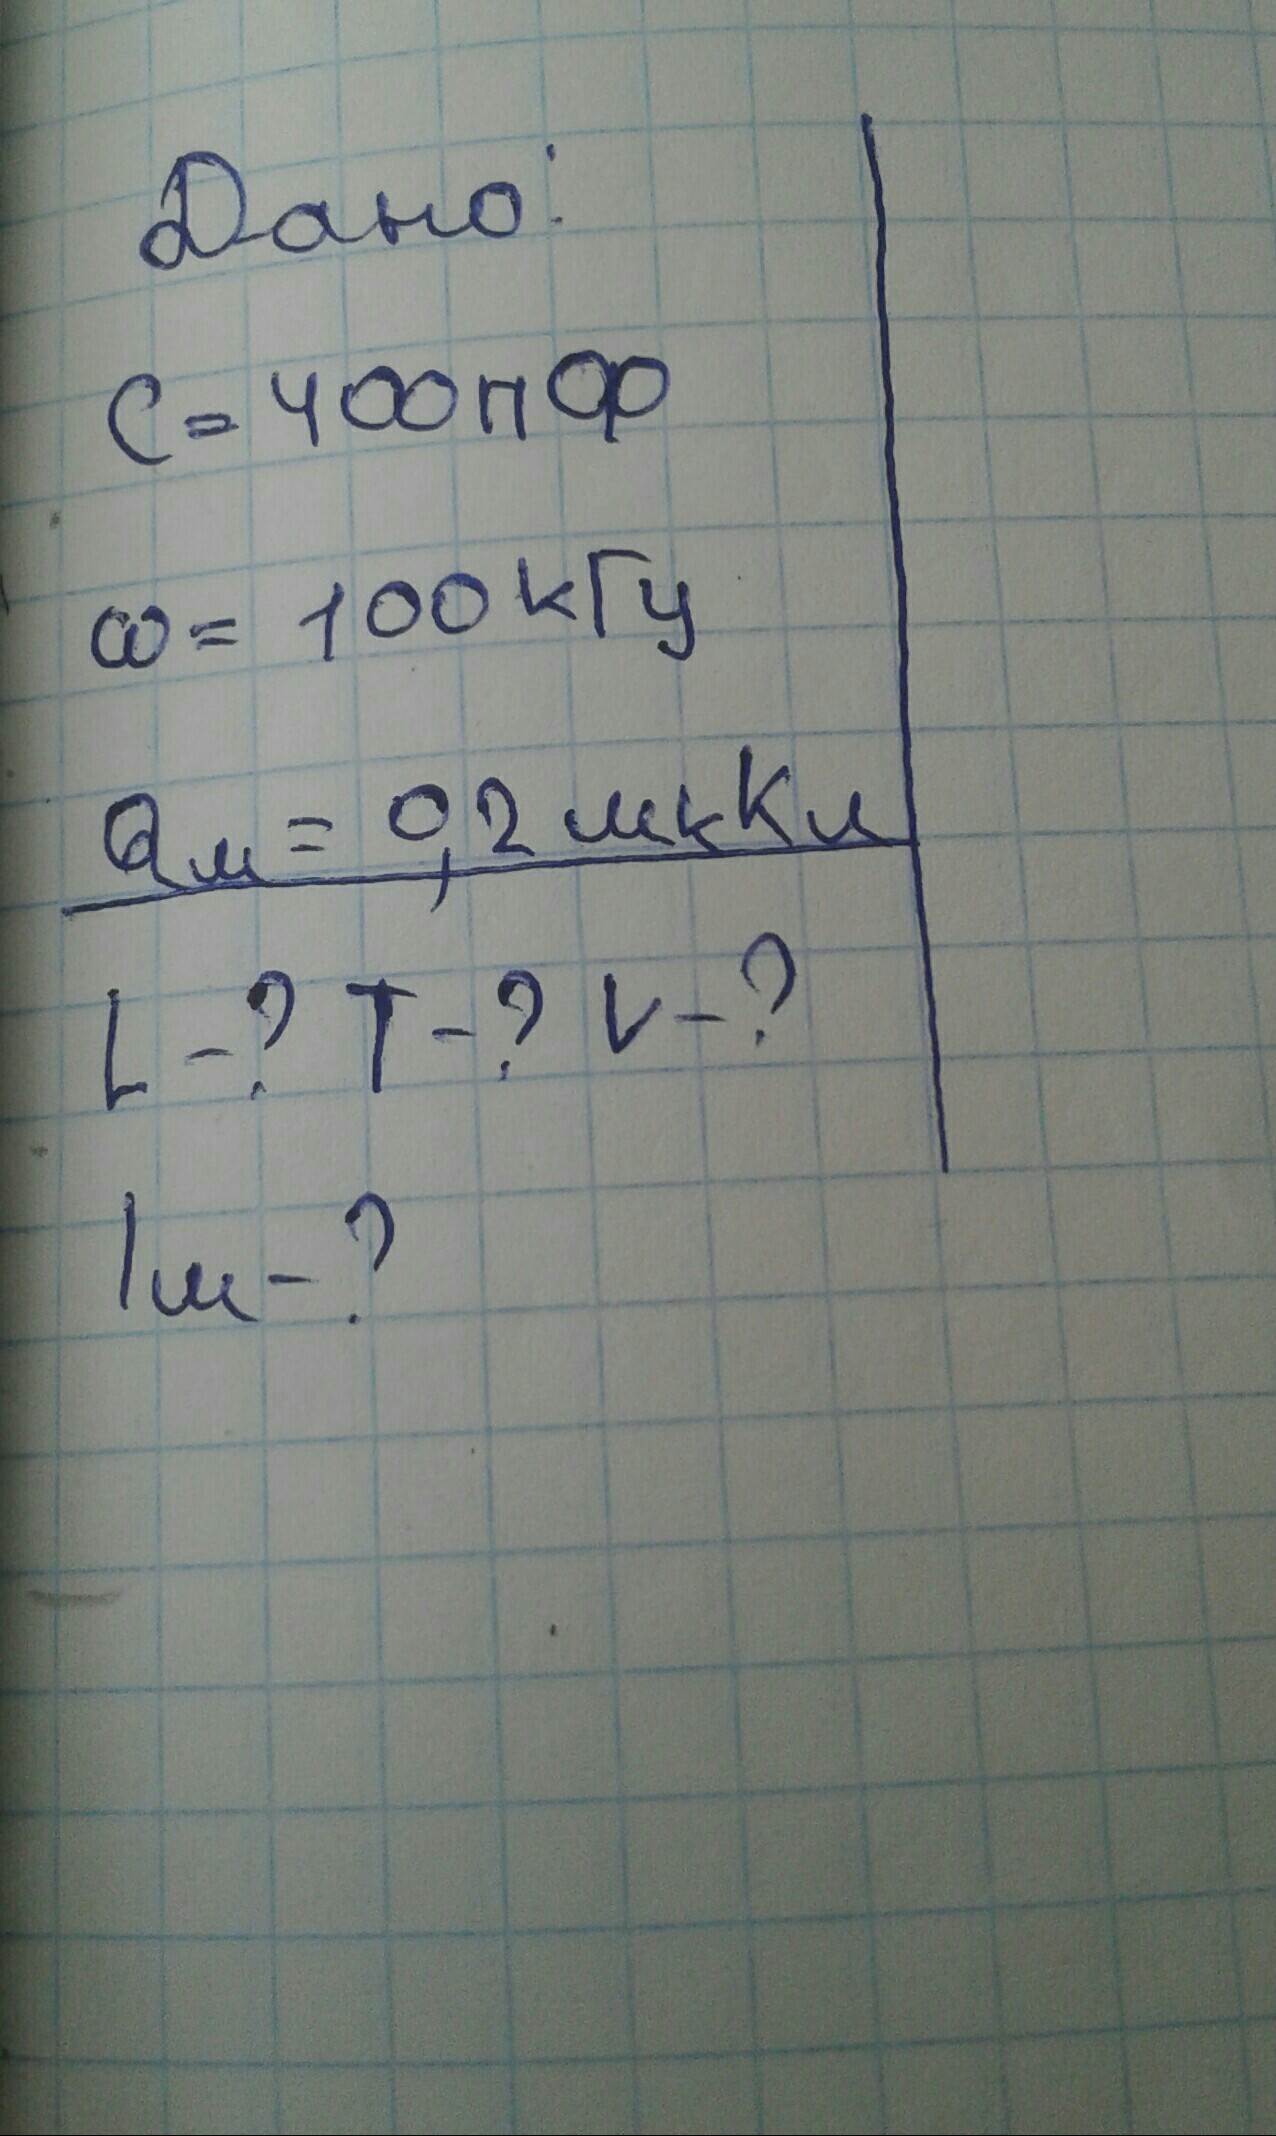 Дано:
C = 400пФ
ω = 100кГц
Qм = 0,2 мкКл
L-? T-? ν-?
Iм-?